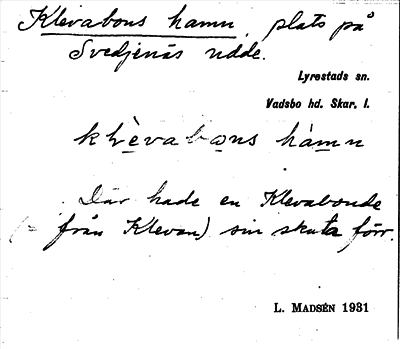 Klevabons hamn, plats på
Svedjenäs udde.
Lyrestads sn.
Vadsbo hd. Skar. l.
klèvabons hàmn
Där hade en Klevabonde
(= från Klevan) sin skuta förr.
L. MADSÉN 1931